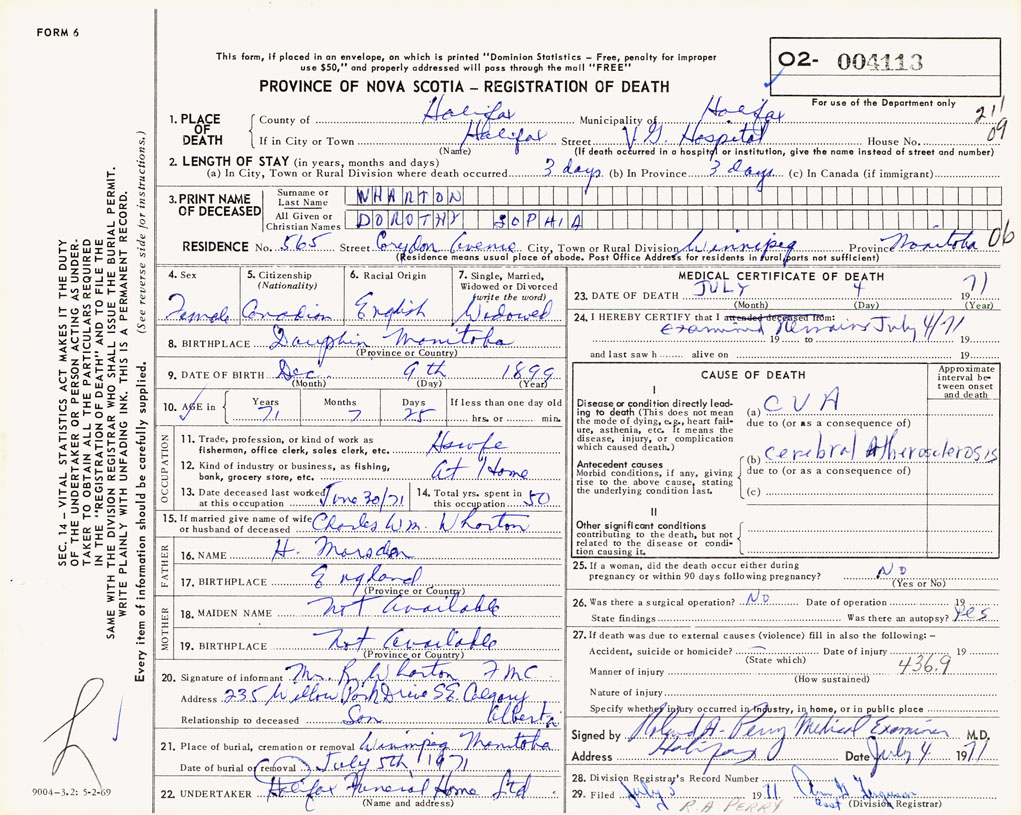 FORM 6
This form, if placed in an envelope, on which is printed "Dominion Statistics – Free, penalty for improper
use $50," and properly addressed will pass through the mail "FREE"
PROVINCE OF NOVA SCOTIA – REGISTRATION OF DEATH
02- 004113
For use of the Department only
211
09
1. PLACE OF DEATH
County of Halifax Municipality of Halifax
If in City or Town Halifax Street V.G. Hospital House No.
(Name) (If death occurred in a hospital or institution, give the name instead of street and number)
2. LENGTH OF STAY (in years, months and days)
(a) In City, Town or Rural Division where death occurred 3 days (b) In Province 3 days (c) In Canada (if immigrant)
3. PRINT NAME OF DECEASED
Surname or Last Name WHARTON
All Given or Christian Names DOROTHY SOPHIA
RESIDENCE No. 565 Street Corydon Avenue City, Town or Rural Division Winnipeg Province Manitoba 06
(Residence means usual place of abode. Post Office Address for residents in rural parts not sufficient)
4. Sex
Female
5. Citizenship
(Nationality)
Canadian
6. Racial Origin
English
7. Single, Married,
Widowed or Divorced
(write the word)
Widowed
8. BIRTHPLACE Dauphin Manitoba
(Province or Country)
9. DATE OF BIRTH Dec. 9th 1899
(Month) (Day) (Year)
10. AGE in Years Months Days If less than one day old
71 7 25 hrs. or min.
OCCUPATION
11. Trade, profession, or kind of work as
fisherman, office clerk, sales clerk, etc. Hswfe
12. Kind of industry or business, as fishing,
bank, grocery store, etc. At Home
13. Date deceased last worked
at this occupation June 30/71
14. Total yrs. spent in
this occupation 50
15. If married give name of wife
or husband of deceased Charles Wm. Wharton
FATHER
16. NAME H. Marsden
17. BIRTHPLACE England
(Province or Country)
MOTHER
18. MAIDEN NAME not available
19. BIRTHPLACE not available
(Province or Country)
20. Signature of informant Mr. R. Wharton FMC
Address 235 Willow Park Drive S.E. Calgary
Alberta
Relationship to deceased Son
21. Place of burial, cremation or removal Winnipeg Manitoba
Date of burial or removal July 5th 1971
22. UNDERTAKER Halifax Funeral Home Ltd.
(Name and address)
MEDICAL CERTIFICATE OF DEATH
23. DATE OF DEATH JULY 4 1971
(Month) (Day) (Year)
24. I HEREBY CERTIFY that I attended deceased from:
Examined Remains July 4/71
19 to 19
and last saw h alive on 19
CAUSE OF DEATH
Approximate
interval be-
tween onset
and death
I
Disease or condition directly lead-
ing to death (This does not mean
the mode of dying, e.g., heart fail-
ure, asthenia, etc. It means the
disease, injury, or complication
which caused death.)
(a) CVA
due to (or as a consequence of)
Antecedent causes
Morbid conditions, if any, giving
rise to the above cause, stating
the underlying condition last.
(b) cerebral Atherosclerosis
due to (or as a consequence of)
(c)
II
Other significant conditions
contributing to the death, but not
related to the disease or condi-
tion causing it.
25. If a woman, did the death occur either during
pregnancy or within 90 days following pregnancy? No
(Yes or No)
26. Was there a surgical operation? No Date of operation 19
State findings Was there an autopsy? Yes
27. If death was due to external causes (violence) fill in also the following: –
Accident, suicide or homicide? – Date of injury 19
(State which)
436.9
Manner of injury
(How sustained)
Nature of injury
Specify whether injury occurred in industry, in home, or in public place
Signed by Roland A. Perry Medical Examiner M.D.
Address Halifax Date July 4 1971
28. Division Registrar's Record Number
29. Filed July 5 1971
(Division Registrar)
R. A PERRY
SEC. 14 – VITAL STATISTICS ACT MAKES IT THE DUTY
OF THE UNDERTAKER OR PERSON ACTING AS UNDER-
TAKER TO OBTAIN ALL THE PARTICULARS REQUIRED
IN THE "REGISTRATION OF DEATH" AND TO FILE THE
SAME WITH THE DIVISION REGISTRAR WHO SHALL ISSUE THE BURIAL PERMIT.
WRITE PLAINLY WITH UNFADING INK. THIS IS A PERMANENT RECORD.
Every item of information should be carefully supplied. (See reverse side for instructions.)
9004-3.2: 5-2-69